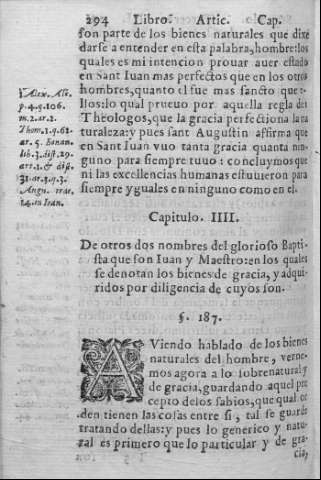 294 Libro. Artic. Cap.
son parte de los bienes naturales que dixe
darse a entender en esta palabra, hombre: los
quales es mi intencion prouar auer estado
en Sant Iuan mas perfectos que en los otros
hombres, quanto el fue mas sancto que e-
llos: lo qual prueuo por aquella regla de
Theologos, que la gracia perfectiona la na
turaleza: y pues sant Augustin affirma que
en Sant Iuan vuo tanta gracia quanta nin-
guno para siempre tuuo: concluymos que
ni las excellencias humanas estuuieron para
siempre yguales en ninguno como en el.
Alex. Ale.
p.4.q.106.
m.2.ar.2.
Thom.1.q.62.
ar. 5. Bonau.
lib.3.dist.29.
art.1. & dist.
31.ar.3.q.3.
Augu. trac.
14.in Ioan.
Capitulo. IIII.
De otros dos nombres del glorioso Bapti-
sta que son Iuan y Maestro: en los quales
se denotan los bienes de gracia, y adqui-
ridos por diligencia de cuyos son.
§. 187.
AViendo hablado de los bienes
naturales del hombre, vene-
mos agora a lo sobrenatural y
de gracia, guardando aquel pre
cepto de los sabios, que qual or
den tienen las cosas entre si, tal se guarde
tratando dellas: y pues lo generico y natu-
ral es primero que lo particular y de gra-
cia,